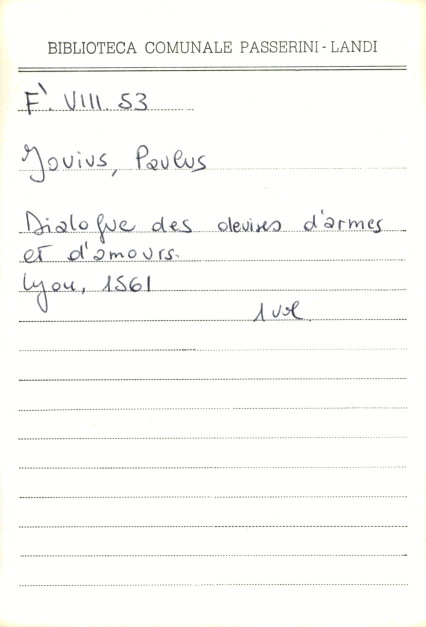 BIBLIOTECA COMUNALE PASSERINI - LANDI
F'. VIII. 53
Jovius, Paulus
Dialogue des devises d'armes
et d'amours.
Lyon, 1561
1 vol.